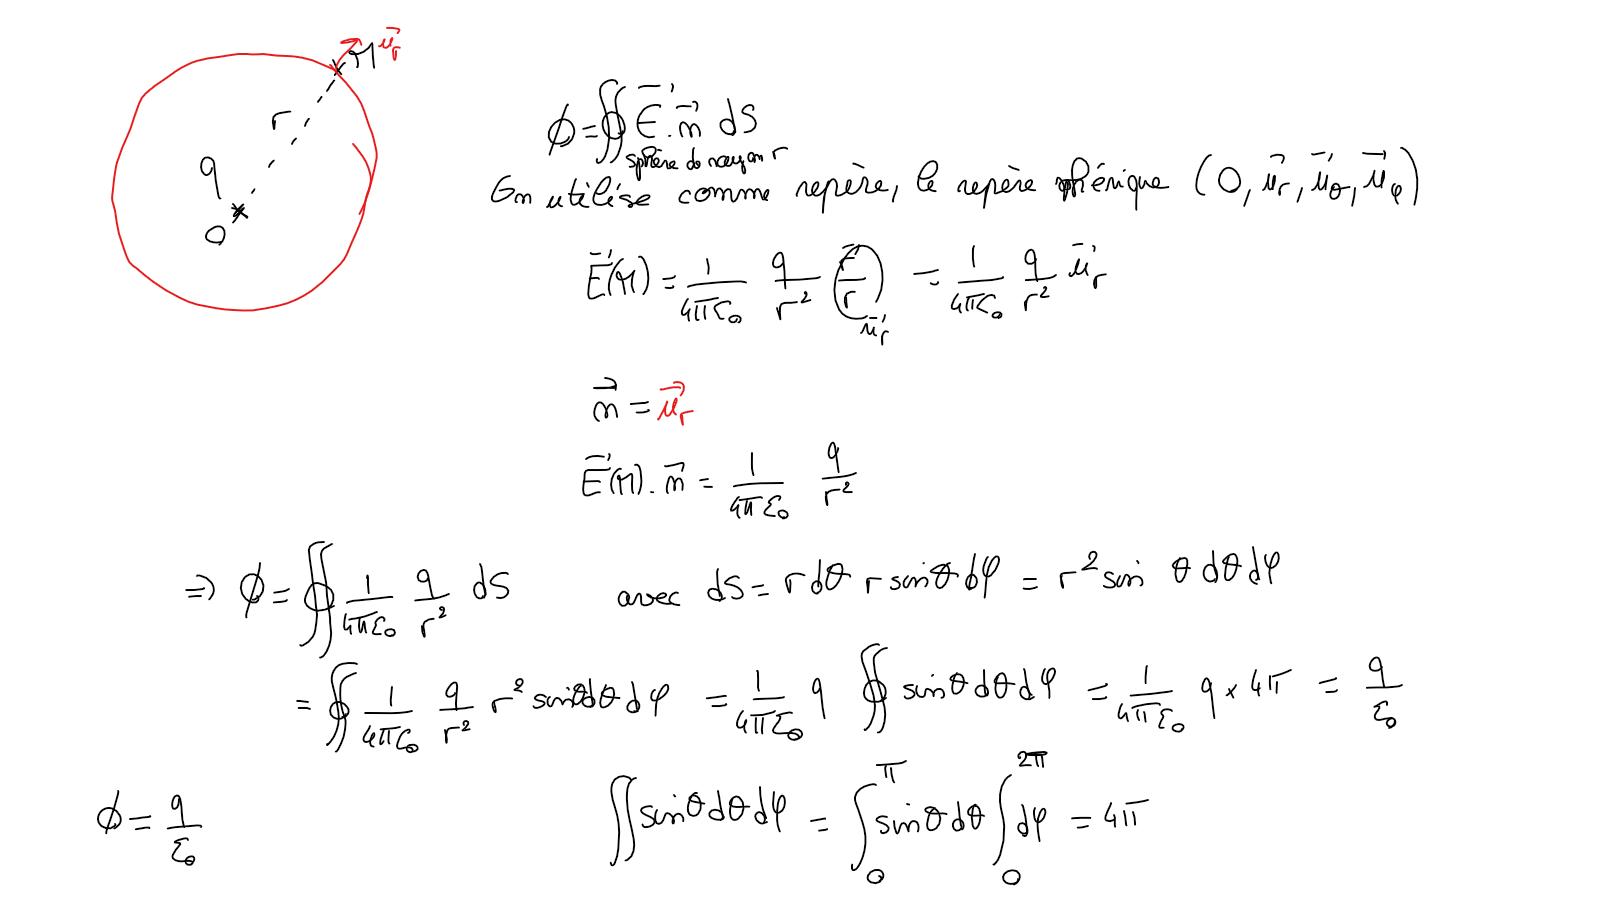 M \vec{u}_r
r
q
O
\phi = \oiint_{sphère de rayon r} \vec{E} . \vec{n} dS
On utilise comme repère, le repère sphérique (O, \vec{u}_r, \vec{u}_θ, \vec{u}_φ)
\vec{E}(M) = \frac{1}{4πε_0} \frac{q}{r^2} \frac{\vec{r}}{r} = \frac{1}{4πε_0} \frac{q}{r^2} \vec{u}_r
\vec{u}_r
\vec{n} = \vec{u}_r
\vec{E}(M) . \vec{n} = \frac{1}{4πε_0} \frac{q}{r^2}
⇒ \phi = \oiint \frac{1}{4πε_0} \frac{q}{r^2} dS avec dS = r dθ r sinθ dφ = r^2 sin θ dθ dφ
= \oiint \frac{1}{4πε_0} \frac{q}{r^2} r^2 sinθ dθ dφ = \frac{1}{4πε_0} q \oiint sinθ dθ dφ = \frac{1}{4πε_0} q × 4π = \frac{q}{ε_0}
\phi = \frac{q}{ε_0} \iint sinθ dθ dφ = \int_0^π sinθ dθ \int_0^{2π} dφ = 4π